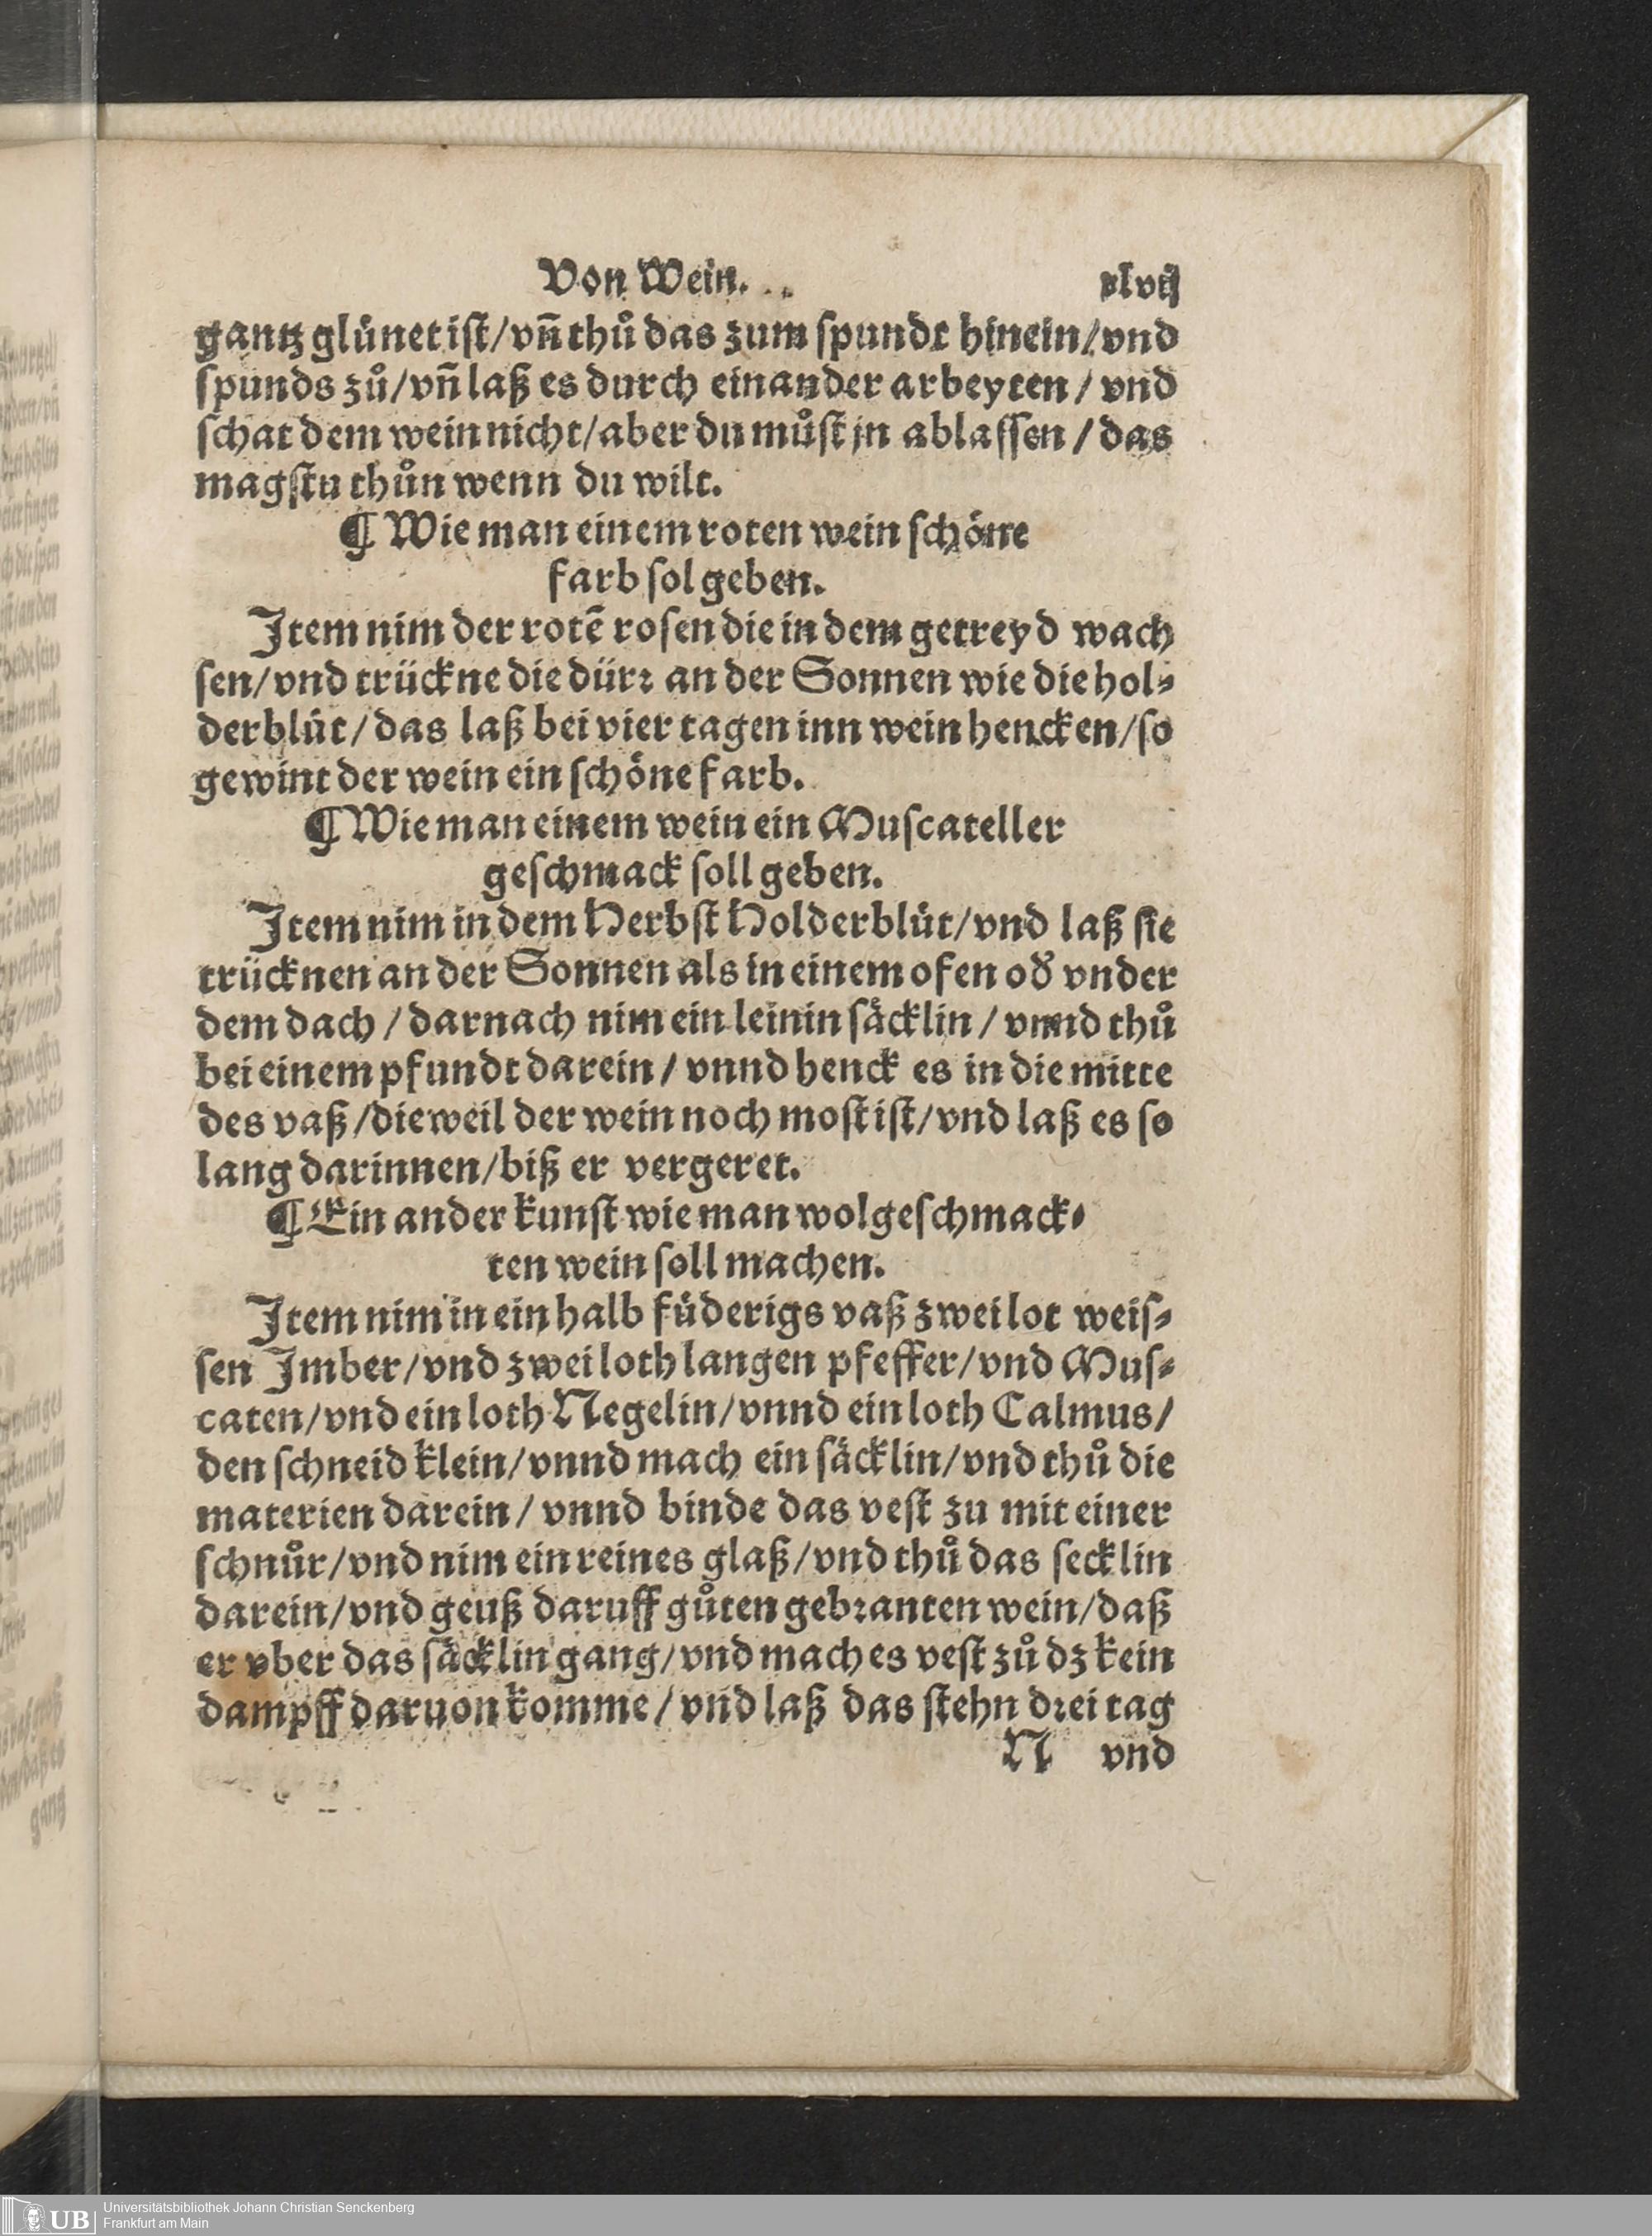 Von Wein. xlvij
gantz glünet ist/vn̄ thů das zum spundt hinein/vnd
spunds zů/vn̄ laß es durch einander arbeyten/ vnd
schat dem wein nicht/aber du můst jn ablassen / das
magstu thůn wenn du wilt.
¶ Wie man einem roten wein schöne
farb sol geben.
Item nim der rotē rosen die in dem getreyd wach
sen/vnd trückne die dürr an der Sonnen wie die hol⸗
derblüt/das laß bei vier tagen inn wein hencken/so
gewint der wein ein schöne farb.
¶ Wie man einem wein ein Muscateller
geschmack soll geben.
Item nim in dem Herbst Holderblüt/vnd laß sie
trücknen an der Sonnen als in einem ofen oď vnder
dem dach / darnach nim ein leinin säcklin / vnnd thů
bei einem pfundt darein/ vnnd henck es in die mitte
des vaß/dieweil der wein noch most ist/vnd laß es so
lang darinnen/biß er vergeret.
¶ Ein ander kunst wie man wolgeschmack⸗
ten wein soll machen.
Item nim in ein halb füderigs vaß zwei lot weis⸗
sen Imber/vnd zwei loth langen pfeffer/vnd Mus⸗
caten/vnd ein loth Negelin/vnnd ein loth Calmus/
den schneid klein/vnnd mach ein säcklin/vnd thů die
materien darein/ vnnd binde das vest zu mit einer
schnůr/vnd nim ein reines glaß/vnd thů das secklin
darein/vnd geuß daruff gůten gebranten wein/daß
er vber das säcklin gang/vnd mach es vest zů dz kein
dampff daruon komme/vnd laß das stehn drei tag
N vnd
UB Universitätsbibliothek Johann Christian Senckenberg
Frankfurt am Main